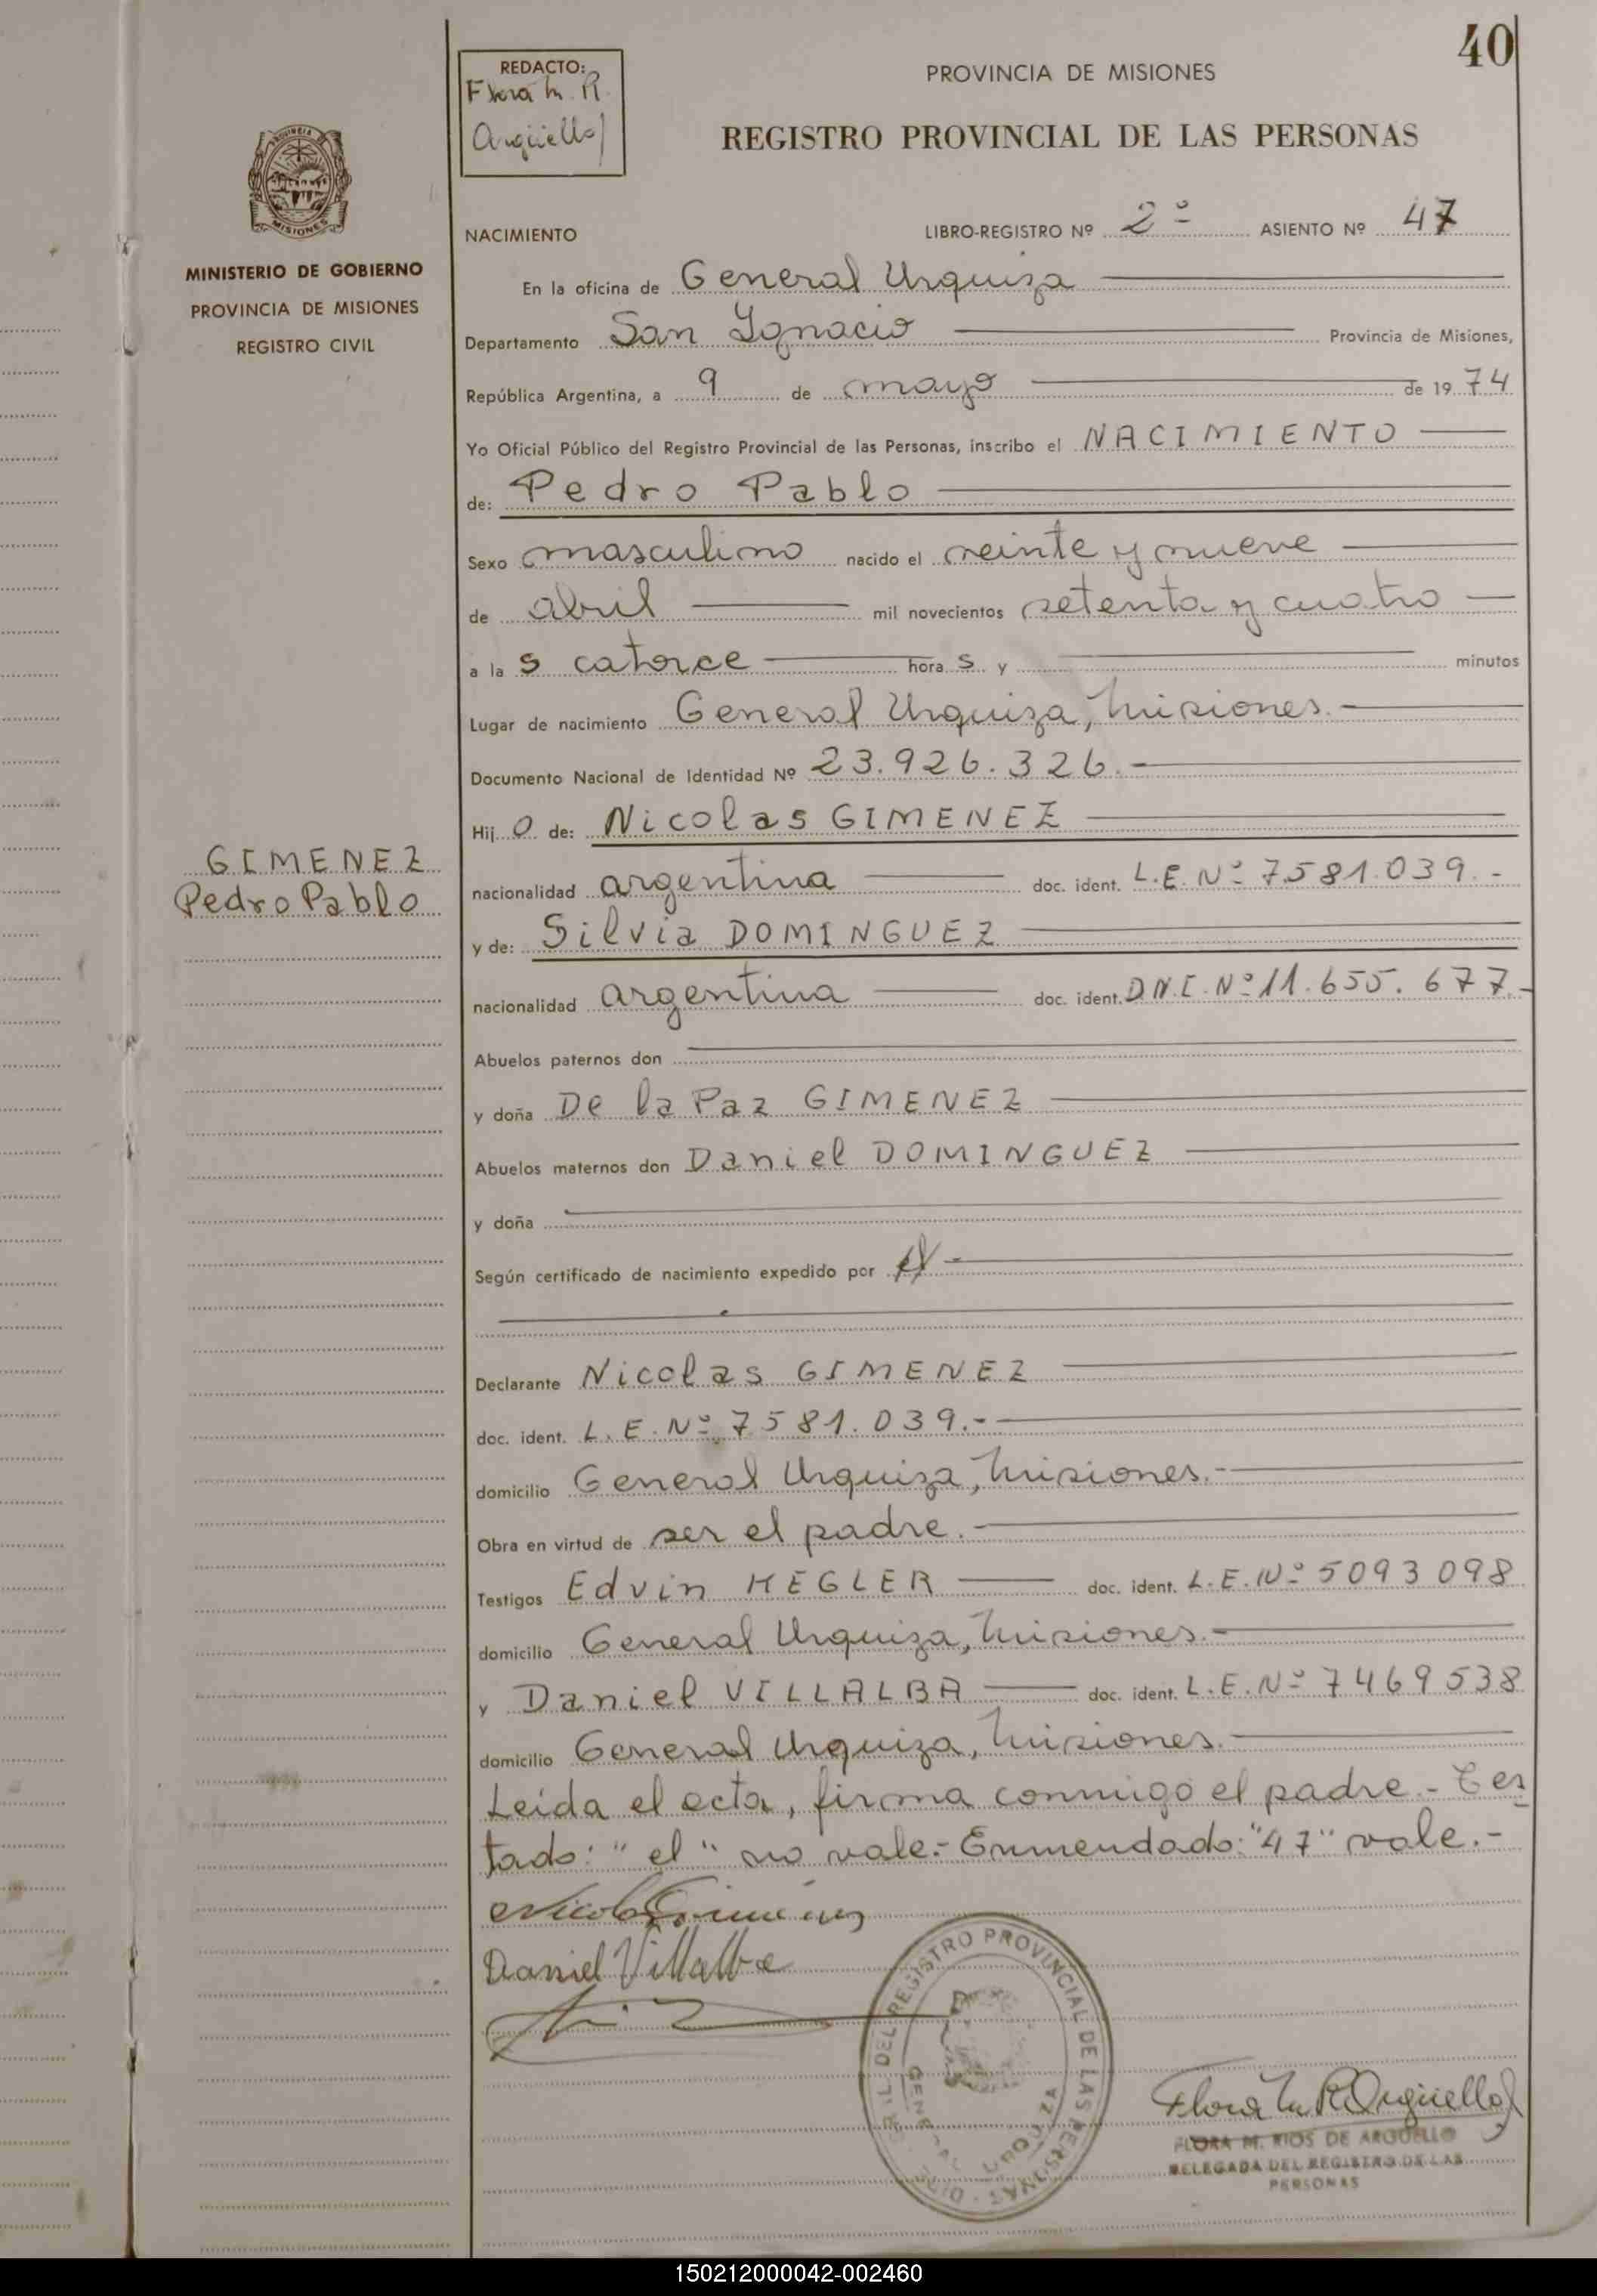 40
REDACTO:
Flora M. R.
Argüello
PROVINCIA DE MISIONES
REGISTRO PROVINCIAL DE LAS PERSONAS
MISIONES
MINISTERIO DE GOBIERNO
PROVINCIA DE MISIONES
REGISTRO CIVIL
NACIMIENTO LIBRO-REGISTRO Nº 2º ASIENTO Nº 47
En la oficina de General Urquiza
Departamento San Ignacio Provincia de Misiones,
República Argentina, a 9 de mayo de 1974
Yo Oficial Público del Registro Provincial de las Personas, inscribo el NACIMIENTO
de: Pedro Pablo
Sexo masculino nacido el veinte y nueve
de abril mil novecientos setenta y cuatro
a las catorce horas y minutos
Lugar de nacimiento General Urquiza, Misiones.-
Documento Nacional de Identidad Nº 23.926.326.-
Hijo de: Nicolas GIMENEZ
GIMENEZ
Pedro Pablo
nacionalidad argentina doc. ident. L.E. Nº 7581.039.-
y de: Silvia DOMINGUEZ
nacionalidad argentina doc. ident. D.N.I. Nº 11.655.677.-
Abuelos paternos don
y doña De la Paz GIMENEZ
Abuelos maternos don Daniel DOMINGUEZ
y doña
Según certificado de nacimiento expedido por el -
Declarante Nicolas GIMENEZ
doc. ident. L.E. Nº 7581.039.-
domicilio General Urquiza, Misiones.-
Obra en virtud de ser el padre.-
Testigos Edvin HEGLER doc. ident. L.E. Nº 5093098
domicilio General Urquiza, Misiones.-
y Daniel VILLALBA doc. ident. L.E. Nº 7469538
domicilio General Urquiza, Misiones.-
Leída el acta, firma conmigo el padre.- Tes
tado: "el" no vale.- Enmendado: "47" vale.-
Nicolas Gimenez
Daniel Villalba
DEL REGISTRO PROVINCIAL DE LAS PERSONAS
GENERAL URQUIZA
Flora M. R. Argüello
FLORA M. RIOS DE ARGÜELLO
DELEGADA DEL REGISTRO DE LAS
PERSONAS
150212000042-002460